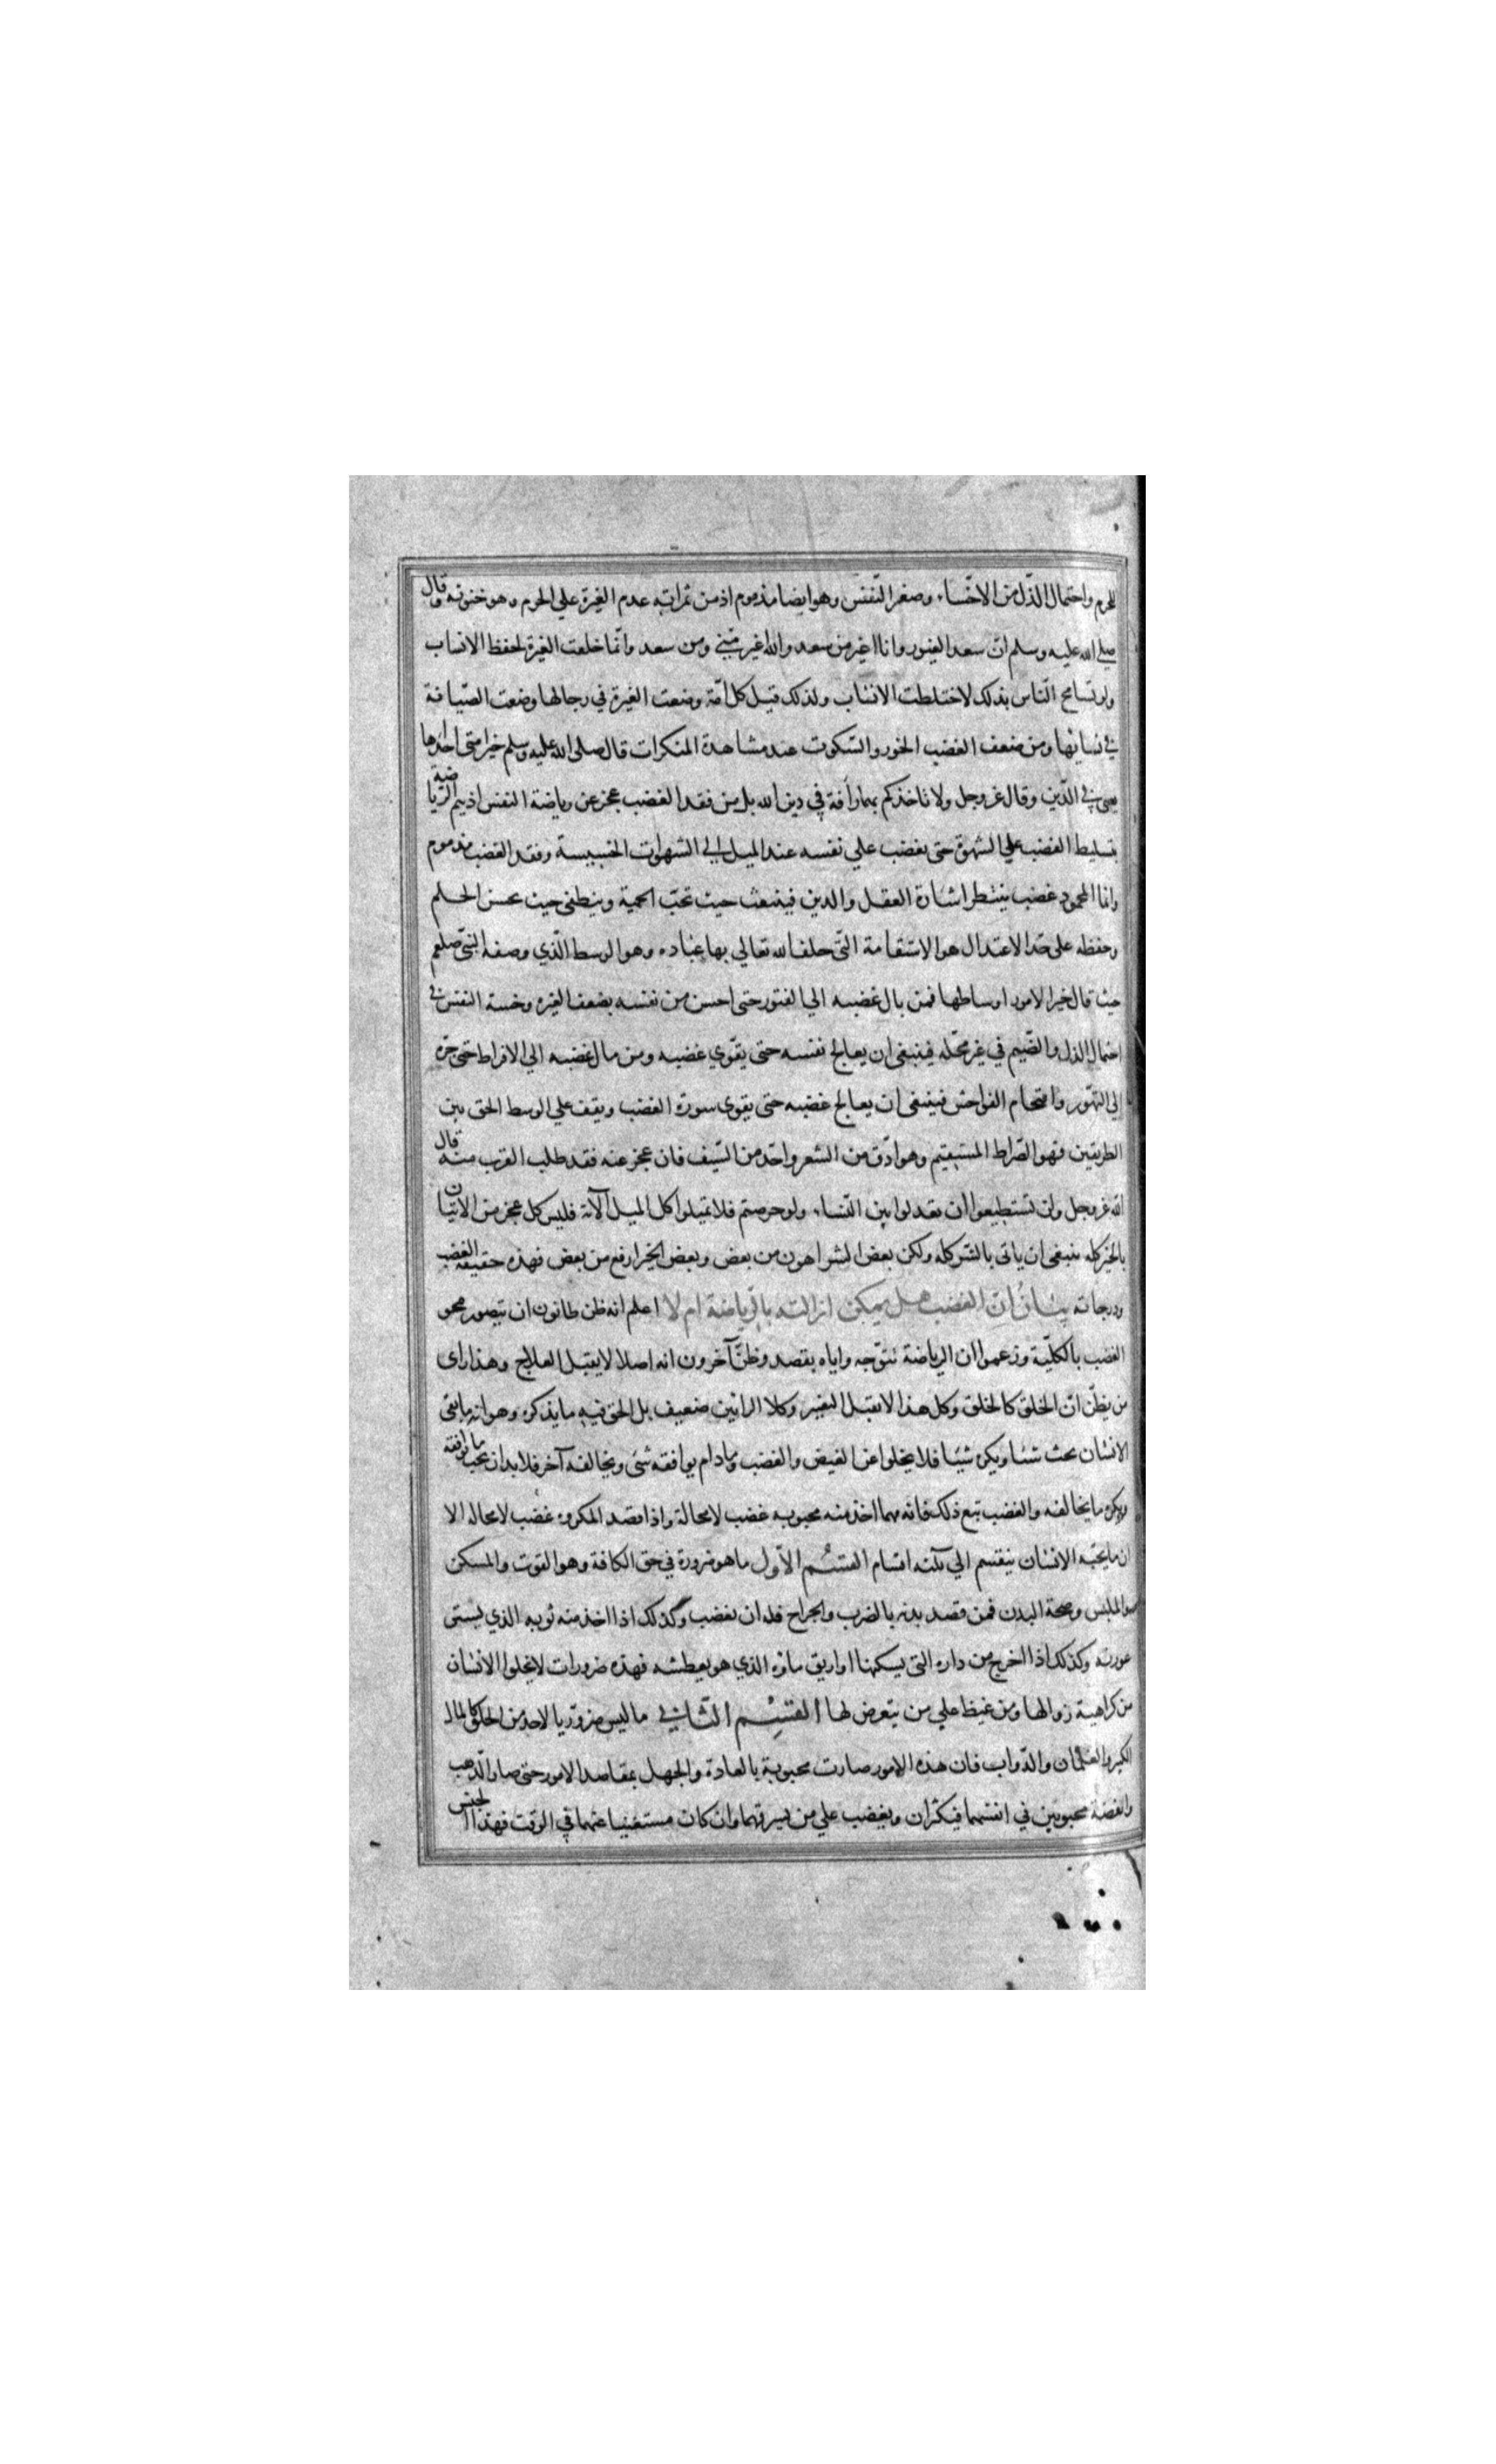 للحرم واحتمال الذّل من الاخّساء وصغر النّفس وهو ايضا مذموم اذ من ثمراته عدم الغيرة علي الحرم وهو خنوثه وقال
صلي الله عليه وسلم انّ سعد الغيور وانا اغير من سعد والله اغير منّي ومن سعد وانّما خلقت الغيرة لحفظ الانساب
ولو تسامح النّاس بذلك لاختلطت الانساب ولذلك قيل كل امّة وضعت الغيرة في رجالها وضعت الصّيانة
في نسائها ومن ضعف الغضب الخور والسّكوت عند مشاهدة المنكرات قال صلى الله عليه وسلم خير امتي احدّها
يعني في الدّين وقال عزوجل ولا تاخذكم بهما رأفة في دين الله بل من فقد الغضب عجز عن رياضة النفس اذ يتم الرّياضة
بتسليط الغضب علي الشهوة حتى يغضب علي نفسه عند الميل الي الشهوات الخسيسة وفقد الغضب مذموم
وانّما المحمود غضب ينتظر اشارة العقل والدين فينبعث حيث تجبّ الحمية وينطفي حيث يحسن الحلم
وحفظه على حدّ الاعتدال هو الاستقامة التّي كلف الله تعالي بها عباده وهو الوسط الّذي وصفه النبّي صلعم
حيث قال خير الامور اوساطها فمن بال غضبه الي الفتور حتى احسن من نفسه بضعف الغيره وخسة النفس في
احتمال الذل والضّيم في غير محّله فينبغي ان يعالج نفسه حتى يقوّي غضبه ومن مال غضبه الي الافراط حتى جرّه
الي التهّور واقتحام الفواحش فينبغي ان يعالج غضبه حتى يقوي سورة الغضب ويقف علي الوسط الحق بين
الطريقين فهو الصّراط المستقيم وهو ادّق من الشعر واحّد من السّيف فان عجز عنه فقد طلب القرب منه قال
الله عزوجل ولن تستطيعوا ان تعدلوا بين النّساء ولو حرصتم فلا تميلوا كل الميل الآية فليس كل عجز من الاتيان
بالخير كله ينبغي ان ياتي بالشّر كله ولكن بعض الشر اهون من بعض وبعض الخير ارفع من بعض فهذه حقيقة الغضب
ودرجاته بيان انّ الغضب هل يمكن ازالته بالرّياضة ام لا اعلم انه ظن ظانون ان يتصور محو
الغضب بالكلّية وزعموا ان الرياضة تتوّجه واياه بقصد وظنّ آخرون انه اصلا لا يقبل العلاج وهذا راى
من يظنّ انّ الخلق كالخلق وكل هذا لا يقبل التغيير وكلا الرائين ضعيف بل الحق فيه ما يذكره وهو انه ما بقي
الانسان يحث شئا ويكره شيئا فلا يخلوا عن الغيض والغضب وما دام يوافقه شئ ويخالفه آخر فلا بد ان يحب ما يوافقه
ويكره ما يخالفه والغضب تبع ذلك فانه مهما اخذ منه محبوبه غضب لا محالة واذا قصد المكروه غضب لا محاله الا
ان ما يحّبه الانسان ينقسم الي ثلثه اقسام القسم الاوّل ما هو ضرورة في حق الكافة وهو القوت والمسكن
والملبس وصحة البدن فمن قصد بدنه بالضرب والجراح فلا ان يغضب وكذلك اذا اخذ منه ثوبه الذي يستي
عورته وكذلك اذا اخرج من داره التي يسكنها او اريق ماؤه الذي هو يعطشه فهذه ضرورات لا يخلوا الانسان
من كراهية زوالها ومن غيظ علي من يتعرض لها القسم الثّاني ما ليس ضروّريا لاحد من الخلق كالمال
الكثير والغلمان والدّواب فان هذه الامور صارت محبوبة بالعادة والجهل بمقاصد الامور حتى صار الذّهب
والفضة محبوبين في انفسهما فيكثران ويغضب علي من يسرقهما وان كان مستغنيا عنهما في الوقت فهذا الجنس